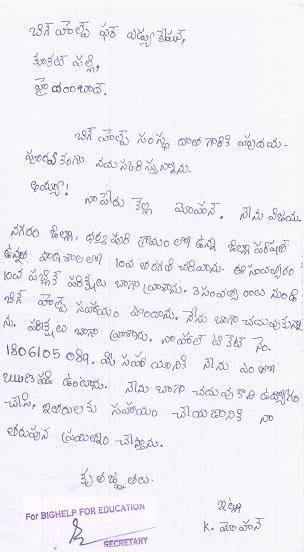 బిగ్ హెల్ప్ ఫర్ ఎడ్యుకేషన్,
కూకట్ పల్లి,
హైదరాబాద్.
బిగ్ హెల్ప్ సంస్థ దాత గారికి హృదయ-
పూర్వకంగా నమస్కరిస్తున్నాను.
అయ్యా!
నా పేరు కెల్ల మోహన్. నేను విజయ-
నగరం జిల్లా, ధర్మపురి గ్రామం లో ఉన్న జిల్లా పరిషత్
ఉన్నత పాఠశాలలో 10వ తరగతి చదివాను. ఈ సంవత్సరం
10వ పబ్లిక్ పరీక్షలు బాగా వ్రాశాను. 3 సంవత్స రాలు నుండి
బిగ్ హెల్ప్ సహాయం పొందాను. నేను బాగా చదువుకున్నా
ను. పరీక్షలు బాగా వ్రాశాను. నా హాల్ టికెట్ నెం.
1806105089. మీ సహా యానికి నేను ఎం తో
ఋణపడి ఉంటాను. నేను బాగా చదువుకొని ఉద్యోగం
చేసి, ఇతరులకు సహాయం చేయడానికి నా
తరుపున ప్రయత్నం చేస్తాను.
కృతజ్ఞతలు.
ఇట్లు
K. మోహన్
For BIGHELP FOR EDUCATION
SECRETARY